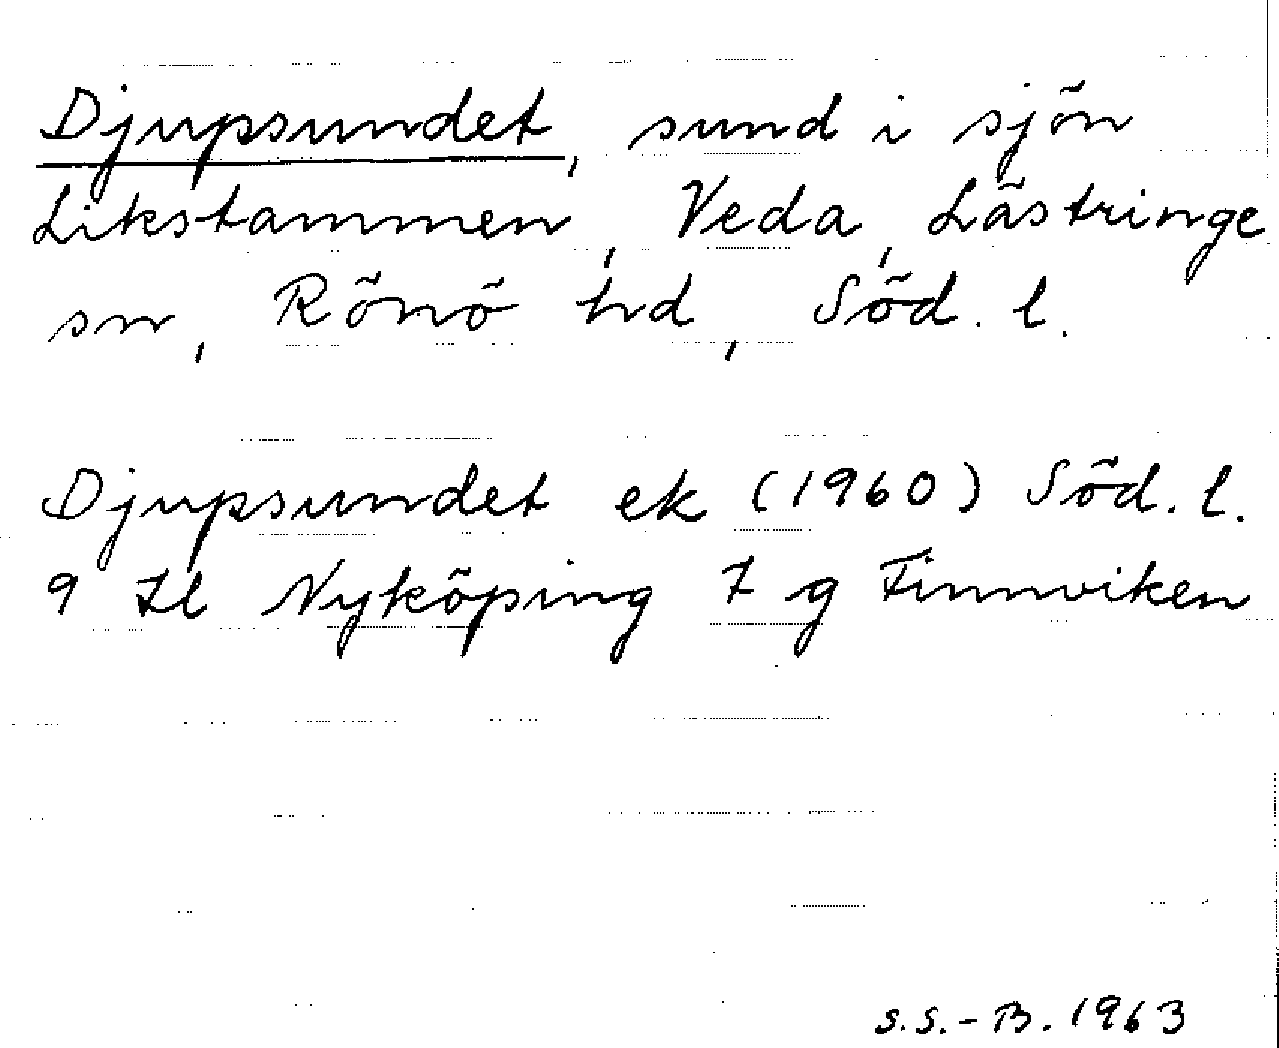 Djupsundet, sund i sjön
Likstammen, Veda, Lästringe
sn, Rönö hd, Söd. l.
Djupsundet ek (1960) Söd. l.
9 Il Nyköping 7 g Finnviken
S.S.-B. 1963